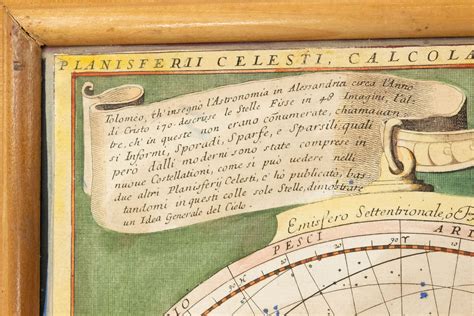 PLANISFERII CELESTI, CALCOLA
Tolomeo, ch'insegnò l'Astronomia in Alessandria circa l'Anno
di Cristo 170. descrisse le Stelle Fisse in 48 Imagini, l'al=
tre, ch'in queste non erano cōnumerate, chiamauan=
si Informi, Sporadi, Sparse, e Sparsili, quali
però dalli moderni sono state comprese in
nuoue Costellationi, come si può uedere nelli
due altri Planisferij Celesti, c'hò publicato, bas=
tandomi in questi colle sole Stelle, dimostrare
un Idea Generale del Cielo.
Emisfero Settentrionale, ò
PESCI
ARI